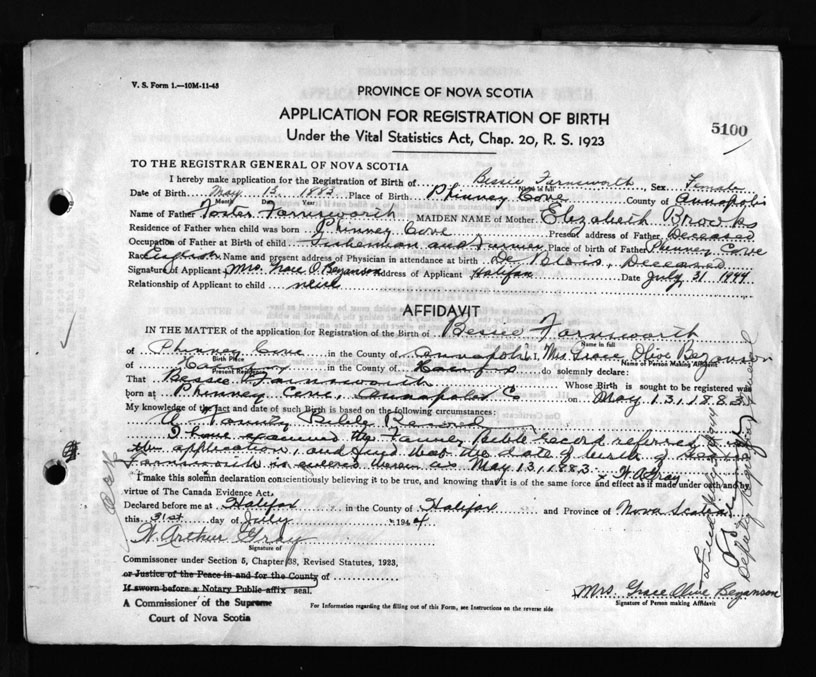 V. S. Form 1.—10M-11-43
PROVINCE OF NOVA SCOTIA
APPLICATION FOR REGISTRATION OF BIRTH
5100
Under the Vital Statistics Act, Chap. 20, R. S. 1923
TO THE REGISTRAR GENERAL OF NOVA SCOTIA
I hereby make application for the Registration of Birth of Bessie Farnsworth, Sex Female
Name in full
Date of Birth May 13 1883 Place of Birth Phinney Cove County of Annapolis
Month Date Year
Name of Father Foster Farnsworth MAIDEN NAME of Mother Elizabeth Brooks
Residence of Father when child was born Phinney Cove Present address of Father Deceased
Occupation of Father at Birth of child Fisherman and Farmer Place of birth of Father Phinney Cove
Race English Name and present address of Physician in attendance at birth De Blois, Deceased
Signature of Applicant Mrs. Grace O. Bezanson Address of Applicant Halifax Date July 31 1944
Relationship of Applicant to child niece
AFFIDAVIT
IN THE MATTER of the application for Registration of the Birth of Bessie Farnsworth
Name in full
of Phinney Cove in the County of Annapolis I, Mrs. Grace Olive Bezanson
Birth Place Name of Person Making Affidavit
of in the County of do solemnly declare:
Present Residence
That Bessie Farnsworth Whose Birth is sought to be registered was
born at Phinney Cove, Annapolis Co on May 13, 1883
My knowledge of the fact and date of such Birth is based on the following circumstances:
A Family Bible Record
I have examined the Family Bible record referred to in
the application, and find that the date of birth of Bessie
Farnsworth is entered therein as May 13, 1883. W. A. Gray
I make this solemn declaration conscientiously believing it to be true, and knowing that it is of the same force and effect as if made under oath and by
virtue of The Canada Evidence Act.
Declared before me at Halifax in the County of Halifax and Province of Nova Scotia
this 31st day of July 1944
W. Arthur Gray
Signature of
Commissioner under Section 5, Chapter 38, Revised Statutes, 1923,
or Justice of the Peace in and for the County of
If sworn before a Notary Public affix seal.
Mrs. Grace Olive Bezanson
A Commissioner of the Supreme
For Information regarding the filling out of this Form, see Instructions on the reverse side
Signature of Person making Affidavit
Court of Nova Scotia
Deputy Registrar General